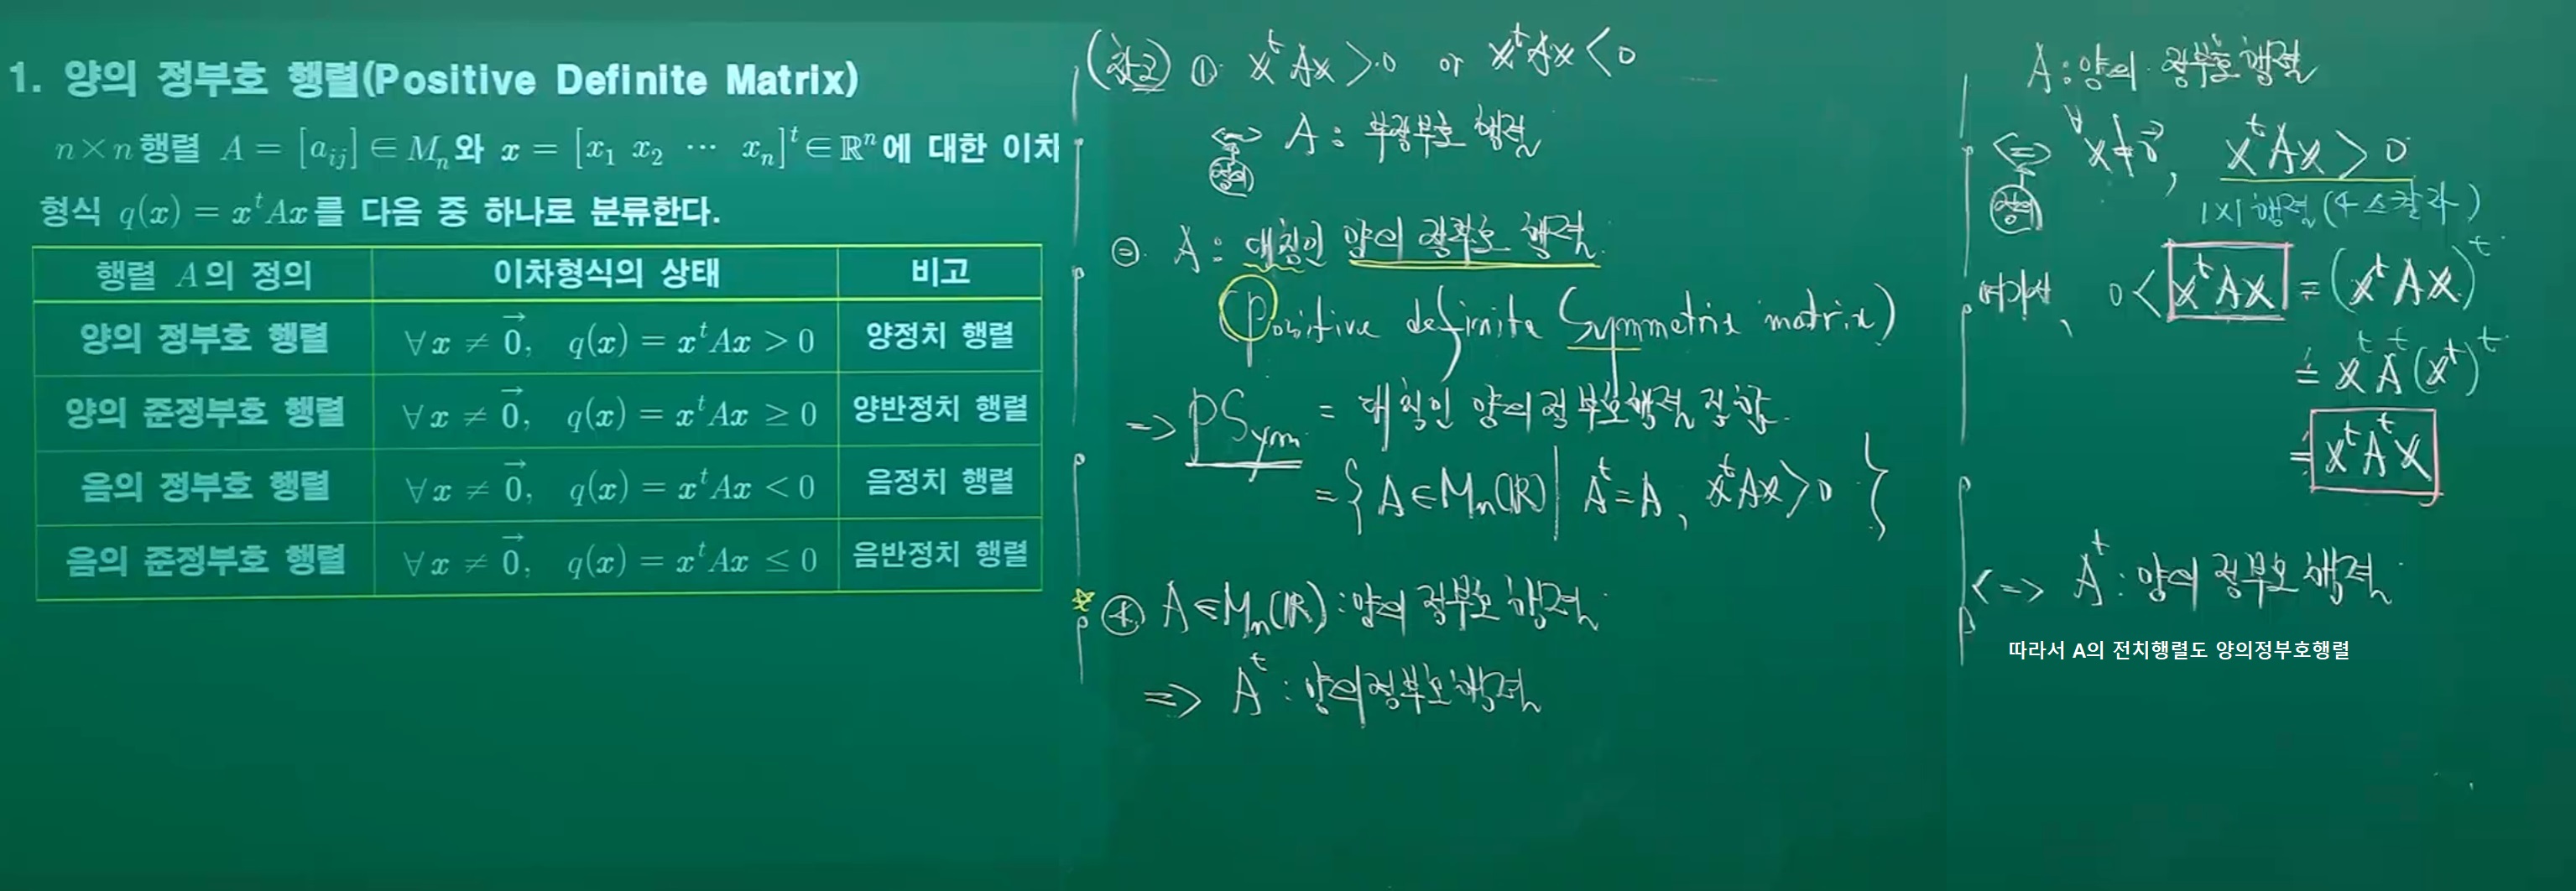 1. 양의 정부호 행렬(Positive Definite Matrix)
n×n 행렬 A = [a_ij] ∈ M_n와 x = [x_1 x_2 ⋯ x_n]^t ∈ ℝ^n에 대한 이차
형식 q(x) = x^t Ax를 다음 중 하나로 분류한다.
행렬 A의 정의 이차형식의 상태 비고
양의 정부호 행렬 ∀x ≠ 0⃗, q(x) = x^t Ax > 0 양정치 행렬
양의 준정부호 행렬 ∀x ≠ 0⃗, q(x) = x^t Ax ≥ 0 양반정치 행렬
음의 정부호 행렬 ∀x ≠ 0⃗, q(x) = x^t Ax < 0 음정치 행렬
음의 준정부호 행렬 ∀x ≠ 0⃗, q(x) = x^t Ax ≤ 0 음반정치 행렬
(참고) ① x^t Ax > 0 or x^t Ax < 0
<=> A : 부정부호 행렬
정의
A : 대칭인 양의 정부호 행렬.
(Positive definite Symmetric matrix)
=> PSym = 대칭인 양의 정부호행렬 집합.
= { A ∈ M_n(ℝ) | A^t = A, x^t Ax > 0 }
④ A ∈ M_n(ℝ) : 양의 정부호 행렬
=> A^t : 양의 정부호 행렬
A : 양의 정부호 행렬
<=> ∀x ≠ 0⃗, x^t Ax > 0
정의
1×1 행렬 (스칼라)
여기서, 0 < x^t Ax = (x^t Ax)^t
= x^t A^t (x^t)^t
= x^t A^t x
<=> A^t : 양의 정부호 행렬
따라서 A의 전치행렬도 양의정부호행렬